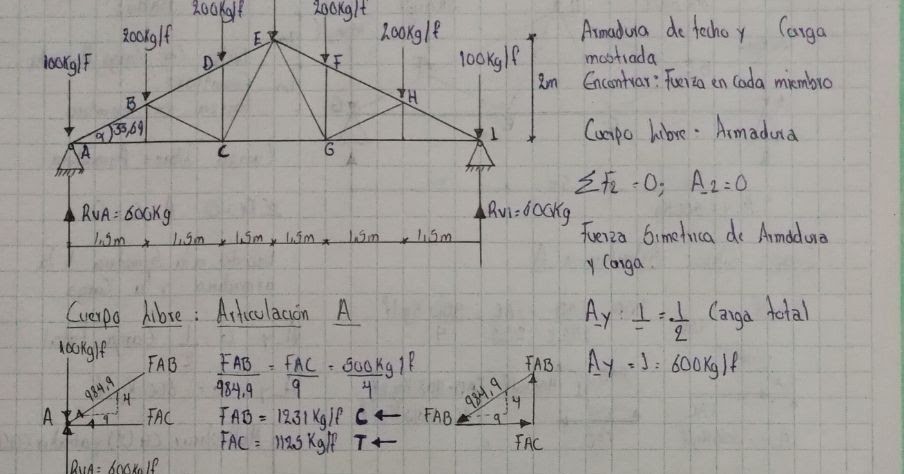 200Kg/f
200Kg/f
200Kg/f
200Kg/f
200Kg/f
100Kg/F
100Kg/f
E
D
F
B
H
2m
α)33,69
A
C
G
I
RvA=600Kg
RvI=600Kg
1,5m 1,5m 1,5m 1,5m 1,5m 1,5m
Armadura de techo y Carga
mostrada
Encontrar: Fuerza en cada miembro
Cuerpo Libre: Armadura
ΣF2 = 0; A2=0
Fuerza Simetrica de Armadura
y Carga.
Ay: I = 1/2 Carga total
Ay = I = 600Kg/f
Cuerpo Libre: Articulación A
100Kg/f
FAB
984,9
4
A
9
FAC
RvA=600Kg/f
FAB/984,9 = FAC/9 = 500Kg/f/4
FAB = 1231Kg/f C ←
FAC = 1125Kg/f T ←
FAB
984,9
4
FAB
9
FAC